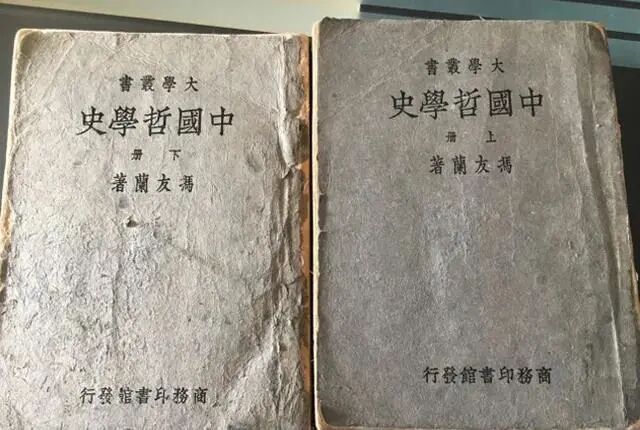 大學叢書
中國哲學史
上册
馮友蘭著
商務印書館發行
大學叢書
中國哲學史
下册
馮友蘭著
商務印書館發行